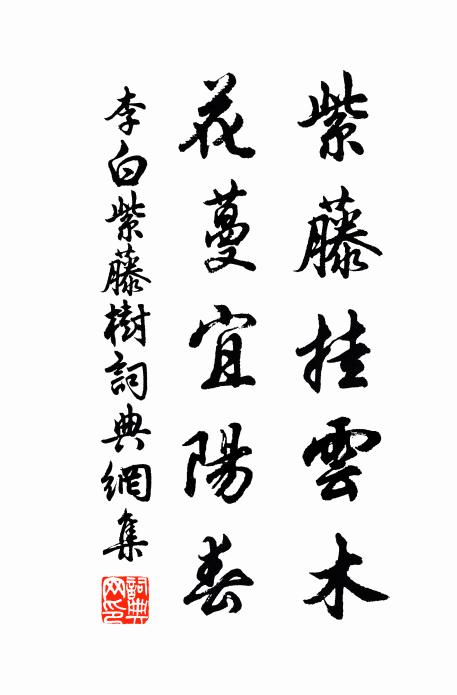 紫藤挂雲木
花蔓宜陽春
李白紫藤樹詞典網集
詞典網印